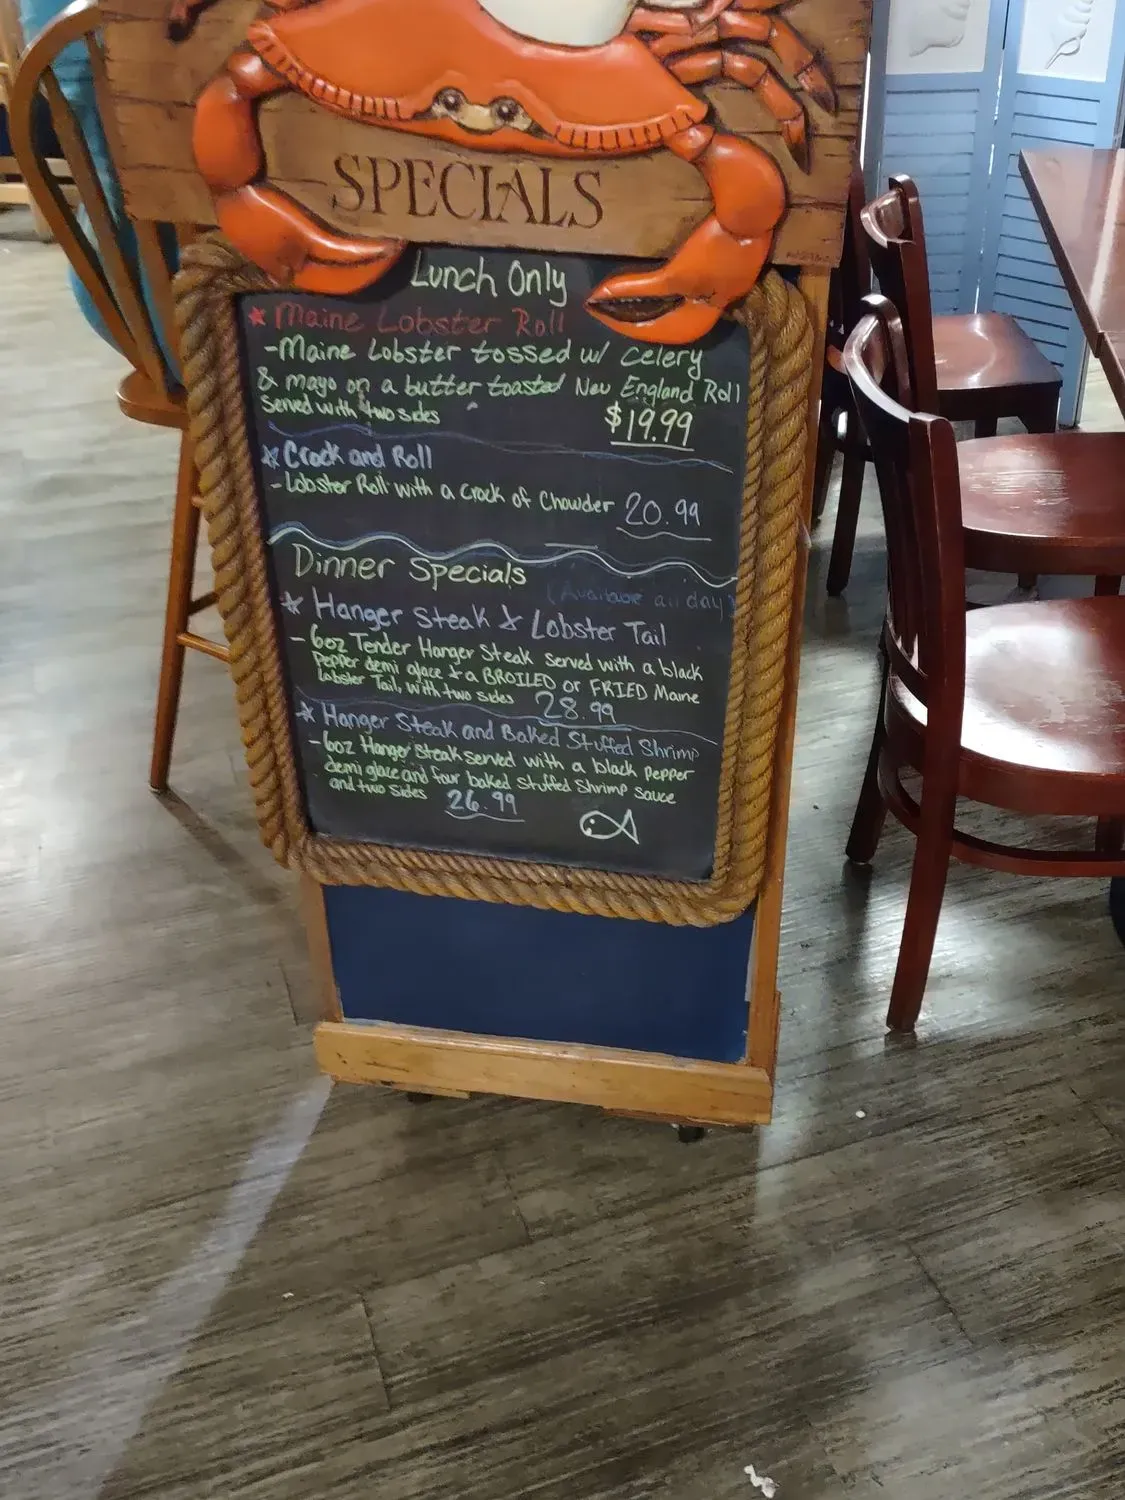 SPECIALS
Lunch Only
* Maine Lobster Roll
- Maine Lobster tossed w/ Celery
& mayo on a butter toasted New England Roll
served with two sides $19.99
* Crock and Roll
- Lobster Roll with a Crock of Chowder 20.99
Dinner Specials
(Available all day)
* Hanger Steak & Lobster Tail
- 6oz Tender Hanger Steak served with a black
Pepper demi glace & a BROILED or FRIED Maine
Lobster Tail, with two sides 28.99
* Hanger Steak and Baked Stuffed Shrimp
- 6oz Hanger Steak served with a black pepper
demi glace and four baked Stuffed Shrimp sauce
and two sides 26.99